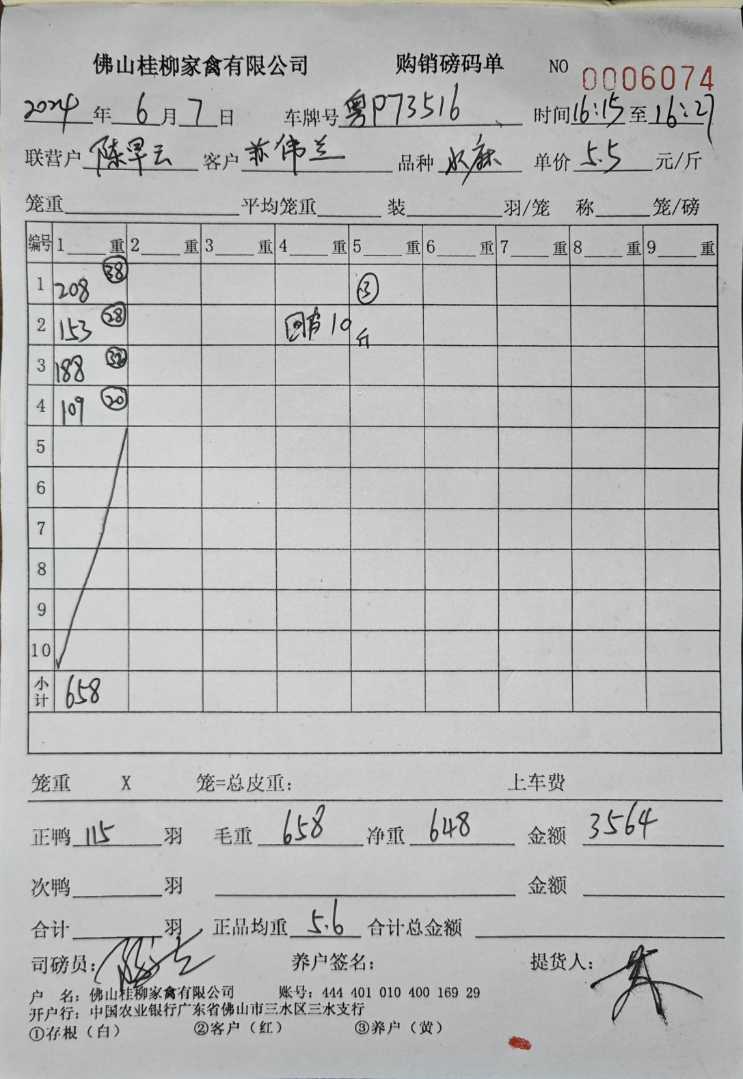 佛山桂柳家禽有限公司 购销磅码单 NO 0006074
2024年 6月 7日 车牌号 粤P73516 时间16:15至16:27
联营户 陈早云 客户 苏伟兰 品种 水麻 单价 5.5 元/斤
笼重 平均笼重 装 羽/笼 称 笼/磅
编号 1 重 2 重 3 重 4 重 5 重 6 重 7 重 8 重 9 重
1 208 38 3
2 153 28 10斤
3 188 32
4 109 20
5
6
7
8
9
10
小计 658
笼重 X 笼=总皮重: 上车费
正鸭 115 羽 毛重 658 净重 648 金额 3564
次鸭 羽 金额
合计 羽 正品均重 5.6 合计总金额
司磅员: 养户签名: 提货人:
户 名: 佛山桂柳家禽有限公司 账号: 444 401 010 400 169 29
开户行: 中国农业银行广东省佛山市三水区三水支行
①存根(白) ②客户(红) ③养户(黄)